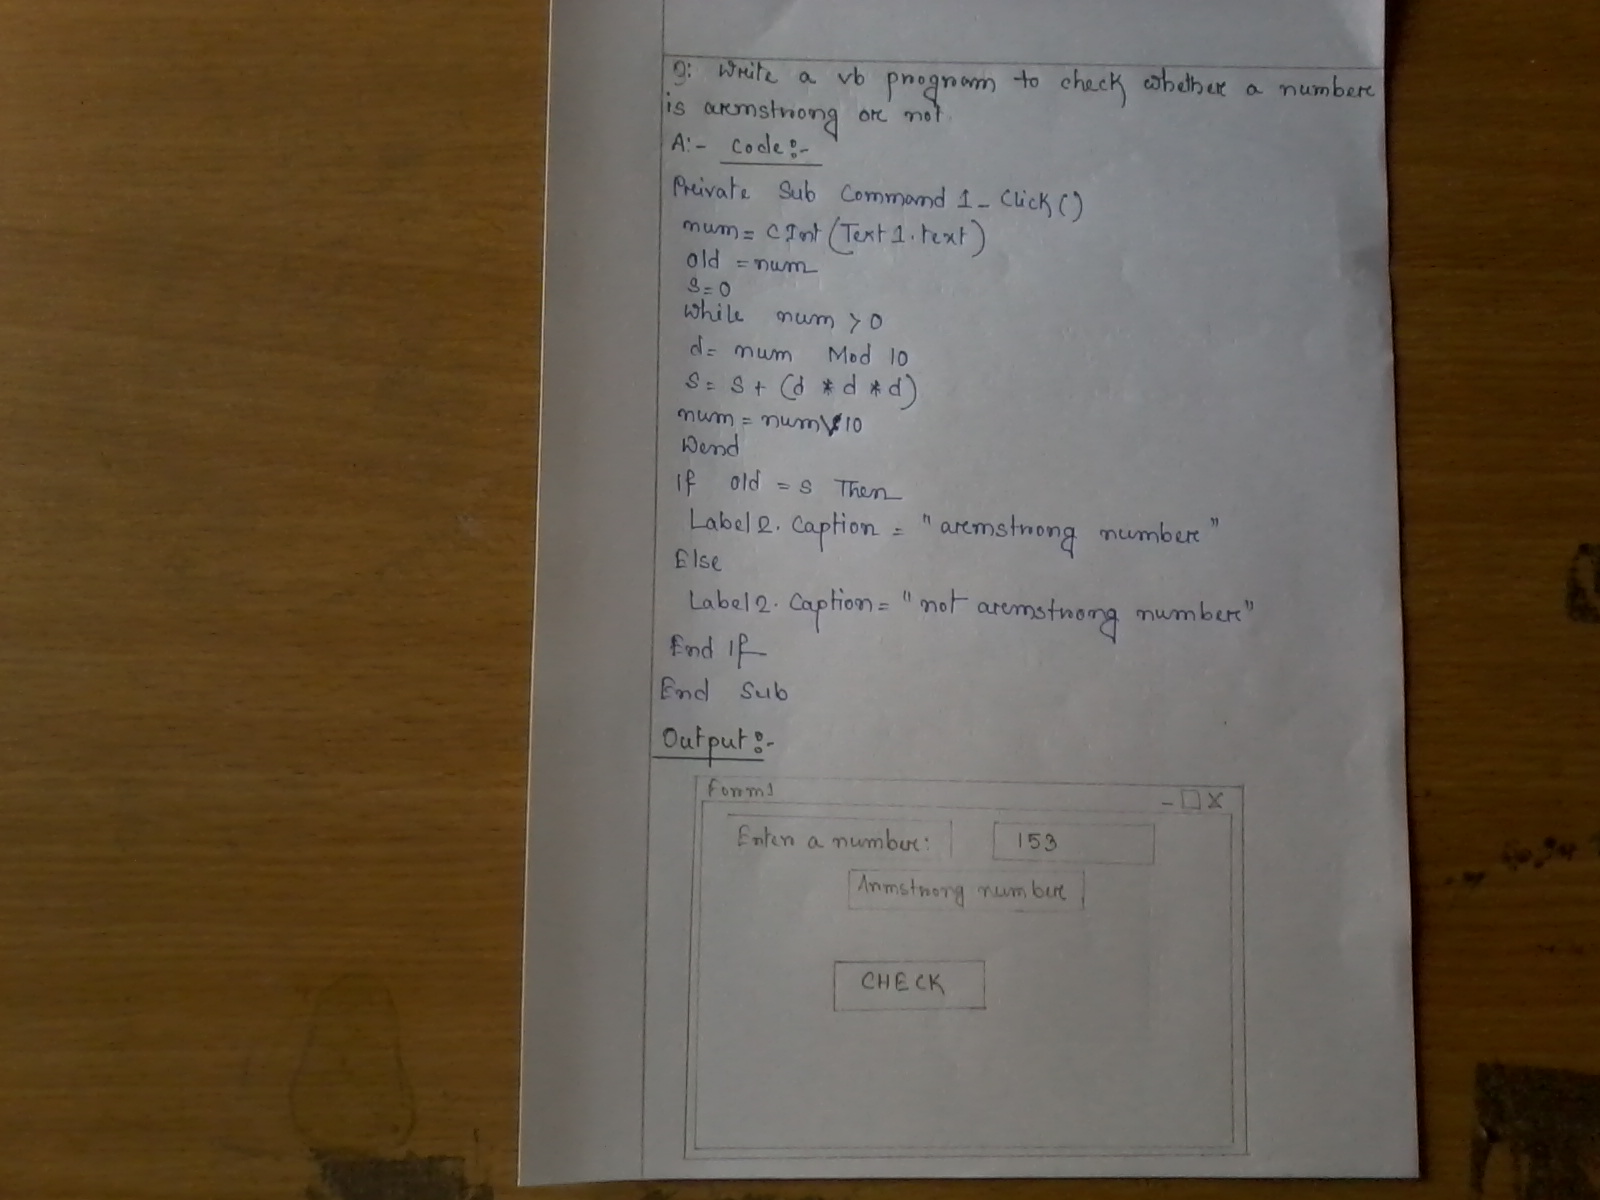 Q: Write a vb program to check whether a number
is armstrong or not.
A:- Code:-
Private Sub Command 1_Click()
num = CInt (Text 1.text)
old = num
s=0
While num > 0
d= num Mod 10
s= s + (d * d * d)
num = num \ 10
Wend
If old = s Then
Label 2. Caption = "armstrong number"
Else
Label 2. Caption = "not armstrong number"
End If
End Sub
Output:-
Form1 - □ X
Enter a number: 153
Armstrong number
CHECK